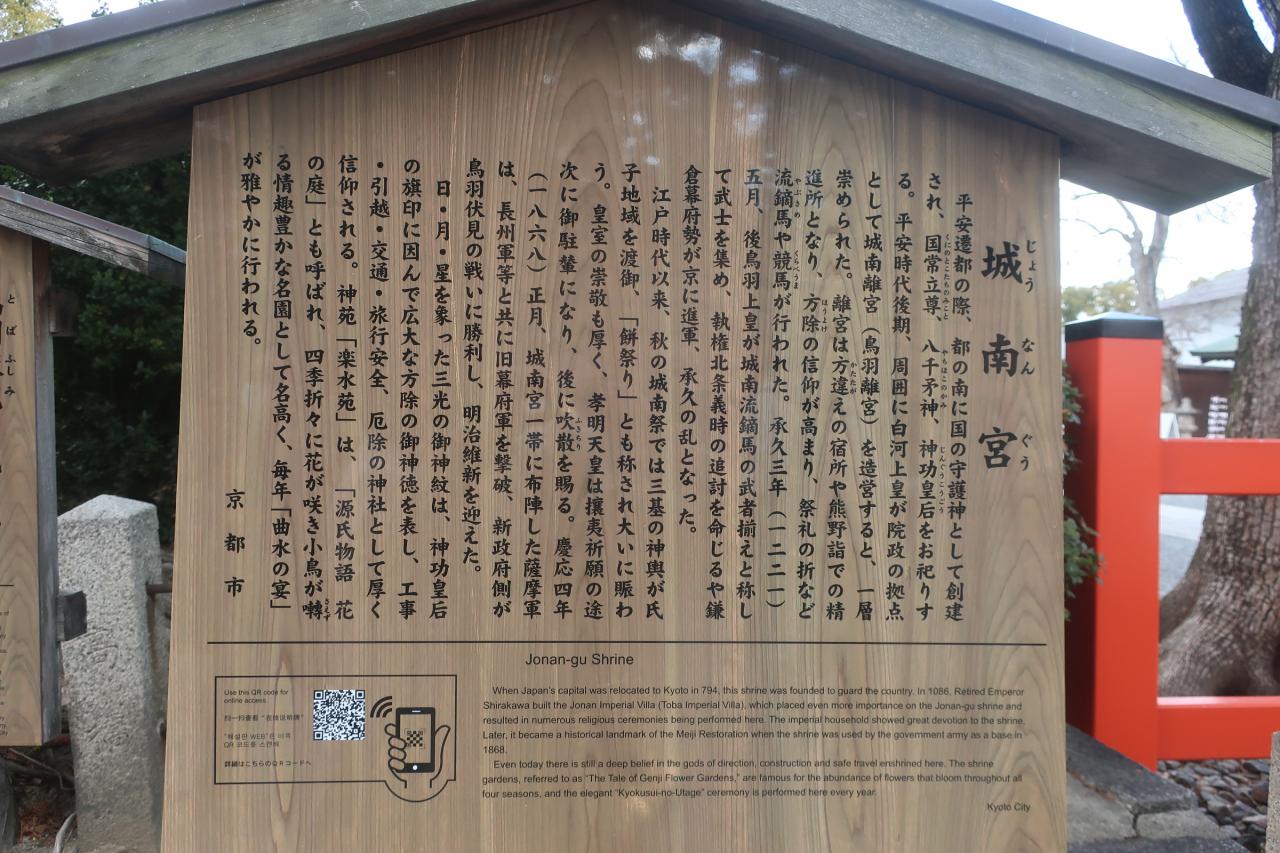 城南宮
じょうなんぐう
平安遷都の際、都の南に国の守護神として創建
され、国常立尊、八千矛神、神功皇后をお祀りす
くにのとこたちのみこと やちほこのかみ じんぐうこうごう
る。平安時代後期、周囲に白河上皇が院政の拠点
として城南離宮（鳥羽離宮）を造営すると、一層
崇められた。離宮は方違えの宿所や熊野詣での精
かたたが
進所となり、方除の信仰が高まり、祭礼の折など
ほうよけ
流鏑馬や競馬が行われた。承久三年（一二二一）
やぶさめ くらべうま
五月、後鳥羽上皇が城南流鏑馬の武者揃えと称し
て武士を集め、執権北条義時の追討を命じるや鎌
倉幕府勢が京に進軍、承久の乱となった。
江戸時代以来、秋の城南祭では三基の神輿が氏
子地域を渡御、「餅祭り」とも称され大いに賑わ
う。皇室の崇敬も厚く、孝明天皇は攘夷祈願の途
次に御駐輦になり、後に吹散を賜る。慶応四年
ふきちり
（一八六八）正月、城南宮一帯に布陣した薩摩軍
は、長州軍等と共に旧幕府軍を撃破、新政府側が
鳥羽伏見の戦いに勝利し、明治維新を迎えた。
日・月・星を象った三光の御神紋は、神功皇后
の旗印に因んで広大な方除の御神徳を表し、工事
・引越・交通・旅行安全、厄除の神社として厚く
信仰される。神苑「楽水苑」は、「源氏物語 花
の庭」とも呼ばれ、四季折々に花が咲き小鳥が囀
さえず
る情趣豊かな名園として名高く、毎年「曲水の宴」
が雅やかに行われる。
京都市
とばふしみ
Jonan-gu Shrine
Use this QR code for
online access.
扫一扫查看“在线说明牌”
"해설판 WEB"은 이쪽
QR 코드를 스캔해
詳細はこちらのQRコードへ
When Japan's capital was relocated to Kyoto in 794, this shrine was founded to guard the country. In 1086, Retired Emperor
Shirakawa built the Jonan Imperial Villa (Toba Imperial Villa), which placed even more importance on the Jonan-gu shrine and
resulted in numerous religious ceremonies being performed here. The imperial household showed great devotion to the shrine.
Later, it became a historical landmark of the Meiji Restoration when the shrine was used by the government army as a base in
1868.
Even today there is still a deep belief in the gods of direction, construction and safe travel enshrined here. The shrine
gardens, referred to as "The Tale of Genji Flower Gardens," are famous for the abundance of flowers that bloom throughout all
four seasons, and the elegant "Kyokusui-no-Utage" ceremony is performed here every year.
Kyoto City